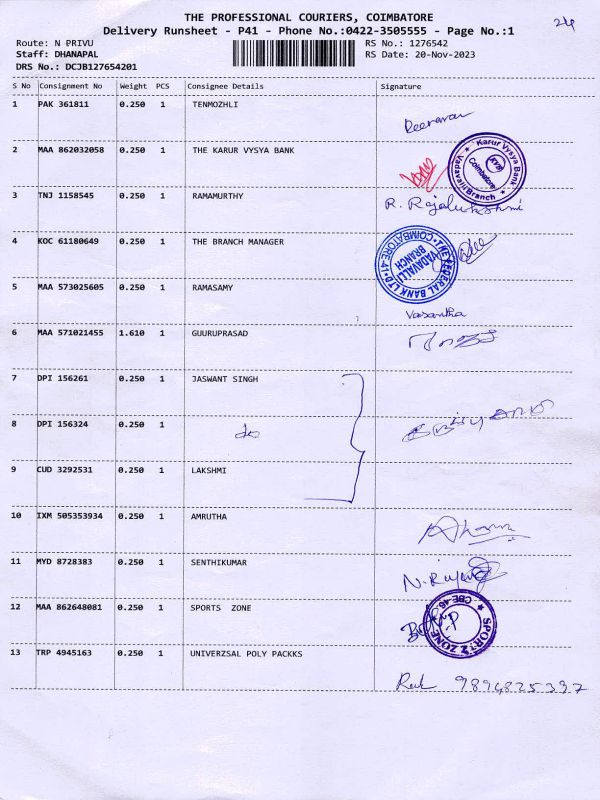 THE PROFESSIONAL COURIERS, COIMBATORE
Delivery Runsheet - P41 - Phone No.:0422-3505555 - Page No.:1
24
Route: N PRIVU RS No.: 1276542
Staff: DHANAPAL RS Date: 20-Nov-2023
DRS No.: DCJB127654201
S No Consignment No Weight PCS Consignee Details Signature
1 PAK 361811 0.250 1 TENMOZHLI
2 MAA 862032058 0.250 1 THE KARUR VYSYA BANK
Karur Vysya Bank
KVB
Coimbatore
Vadavalli Branch
3 TNJ 1158545 0.250 1 RAMAMURTHY R. Rajalukshmi
4 KOC 61180649 0.250 1 THE BRANCH MANAGER
THE FEDERAL BANK LTD
VADAVALLI
BRANCH
COIMBATORE-41
5 MAA 573025605 0.250 1 RAMASAMY Vasantha
6 MAA 571021455 1.610 1 GUURUPRASAD
7 DPI 156261 0.250 1 JASWANT SINGH
8 DPI 156324 0.250 1 do
9 CUD 3292531 0.250 1 LAKSHMI
10 IXM 505353934 0.250 1 AMRUTHA
11 MYD 8728383 0.250 1 SENTHIKUMAR
12 MAA 862648081 0.250 1 SPORTS ZONE
SPORTZ ZONE
CBE-46
13 TRP 4945163 0.250 1 UNIVERZSAL POLY PACKKS
9894825397